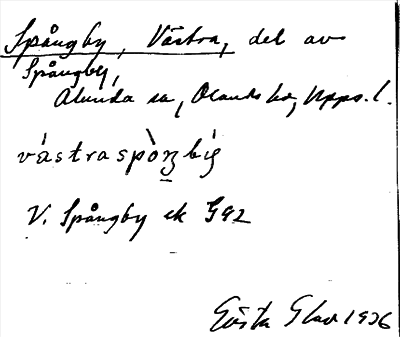 Spångby, Västra, del av
Spångby,
Alunda sn, Olands hd, Upps. l.
västraspòŋbı̇̀
V. Spångby ek G92
Gösta 1926